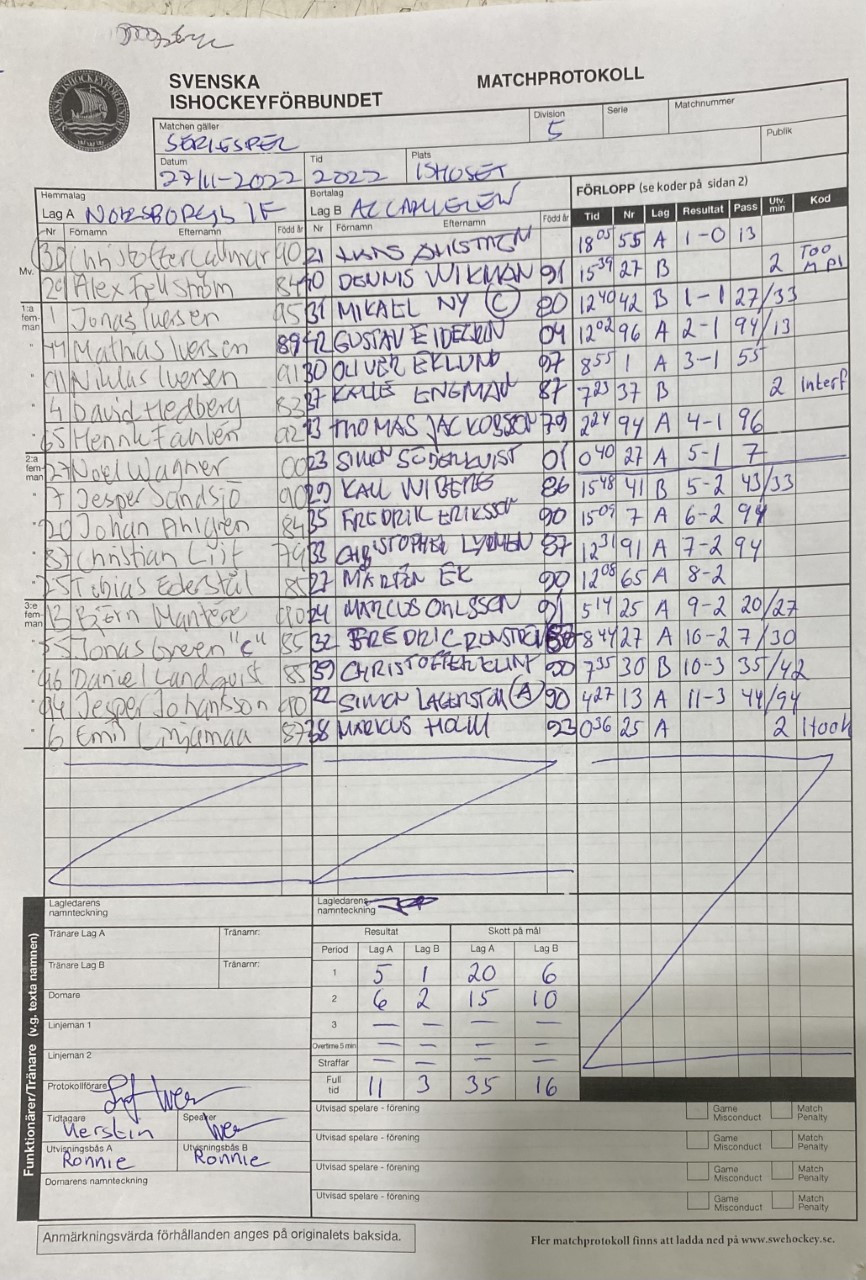 SVENSKA
ISHOCKEYFÖRBUNDET
MATCHPROTOKOLL
Matchen gäller
SERIESPEL
Division
5
Serie
Matchnummer
Datum
27/11-2022
Tid
2022
Plats
ISHUSET
Publik
Hemmalag
Lag A NORRSBORGS IF
Bortalag
Lag B
FÖRLOPP (se koder på sidan 2)
Nr Förnamn Efternamn Född år
Nr Förnamn Efternamn Född år
Tid Nr Lag Resultat Pass Utv. min Kod
Mv.
30 Christoffer Callmar 90
29 Alex Fjellström 84
1:a fem-man
1 Jonas Iversen 95
44 Mathias Iversen 89
91 Niklas Iversen 91
4 David Hedberg 83
65 Henrik Fahlén 92
2:a fem-man
27 Noel Wagner 00
7 Jesper Sandsjö 90
20 Johan Ahlgren 84
37 Christian Lijf 79
25 Tobias Ederstål 85
3:e fem-man
13 Björn Mantere 90
55 Jonas Green "C" 85
96 Daniel Landqvist 85
94 Jesper Johansson 90
6 Emil Linjamaa 87
21 AHLSTRÖM
40 DENNIS WIKMAN 91
31 MIKAEL NY (C) 80
42 GUSTAV EIDERN 04
30 OLIVER EKLUND 97
37 KALLE ENGMAN 87
43 THOMAS JACKOBSSON 79
23 SIMON SÖDERKVIST 01
29 KALL WIBERG 86
35 FREDRIK ERIKSSON 90
33 CHRISTOPHER LYDMEN 87
27 MÅRTEN EK 90
24 MARCUS OHLSSON 91
32 FREDRIC
39 CHRISTOFFER KLINT 90
22 SIMON LAGERSTRÖM (A) 90
38 MARKUS HOLM 93
18 05 55 A 1-0 13
15 39 27 B 2 Too M Pl
12 40 42 B 1-1 27/33
12 02 96 A 2-1 94/13
8 55 1 A 3-1 55
7 23 37 B 2 Interf
2 24 94 A 4-1 96
0 40 27 A 5-1 7
15 48 41 B 5-2 43/33
15 09 7 A 6-2 94
12 31 91 A 7-2 94
12 08 65 A 8-2
5 14 25 A 9-2 20/27
8 44 27 A 10-2 7/30
7 35 30 B 10-3 35/42
4 27 13 A 11-3 44/94
0 36 25 A 2 Hook
Lagledarens namnteckning
Lagledarens namnteckning
Funktionärer/Tränare (v.g. texta namnen)
Tränare Lag A Tränarnr:
Tränare Lag B Tränarnr:
Domare
Linjeman 1
Linjeman 2
Protokollförare
Tidtagare
Kerstin
Speaker
Utvisningsbås A
Ronnie
Utvisningsbås B
Ronnie
Domarens namnteckning
Resultat Skott på mål
Period Lag A Lag B Lag A Lag B
1 5 1 20 6
2 6 2 15 10
3 – – – –
Overtime 5 min – – – –
Straffar – – – –
Full tid 11 3 35 16
Utvisad spelare - förening Game Misconduct Match Penalty
Utvisad spelare - förening Game Misconduct Match Penalty
Utvisad spelare - förening Game Misconduct Match Penalty
Utvisad spelare - förening Game Misconduct Match Penalty
Anmärkningsvärda förhållanden anges på originalets baksida.
Fler matchprotokoll finns att ladda ned på www.swehockey.se.